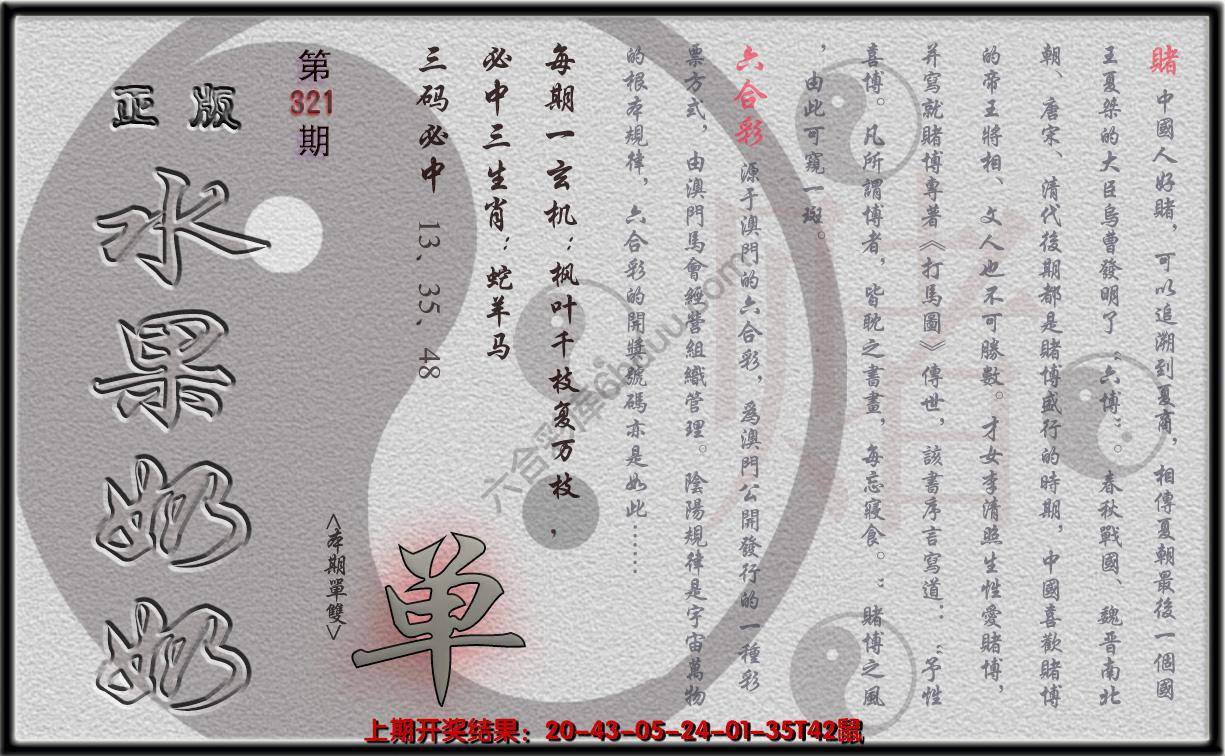 賭 中國人好賭，可以追溯到夏商，相傳夏朝最後一個國
王夏桀的大臣烏曹發明了“六博”。春秋戰國、魏晋南北
朝、唐宋、清代後期都是賭博盛行的時期，中國喜歡賭博
的帝王將相、文人也不可勝數。才女李清照生性愛賭博，
并寫就賭博專著《打馬圖》傳世，該書序言寫道：“予性
喜博。凡所謂博者，皆耽之書畫，每忘寢食。”賭博之風
，由此可窺一斑。
六合彩 源于澳門的六合彩，爲澳門公開發行的一種彩
票方式，由澳門馬會經營組織管理。陰陽規律是宇宙萬物
的根本規律，六合彩的開獎號碼亦是如此……
每期一玄机：枫叶千枝复万枝，
必中三生肖：蛇羊马
三码必中 13、35、48
第321期
正版
水果奶奶
<本期單雙>
单
六合彩库6huuu.com
上期开奖结果：20-43-05-24-01-35T42鼠